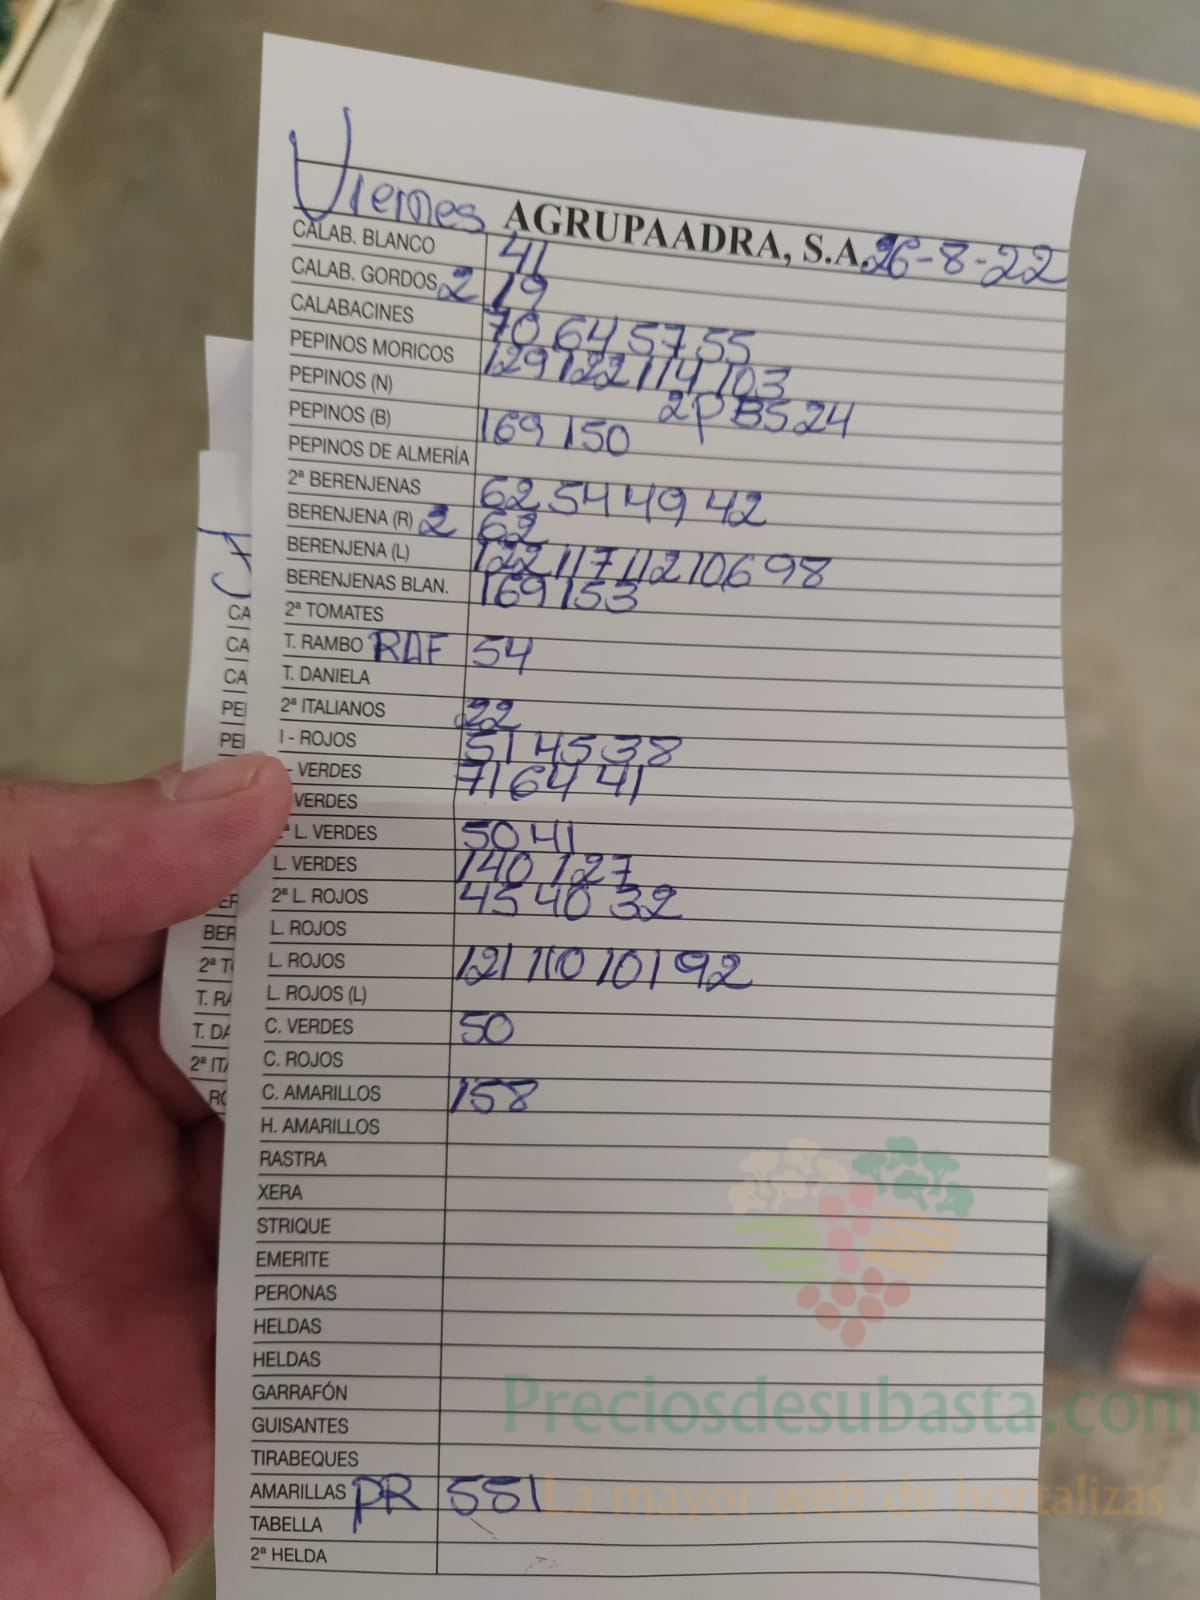 Viernes AGRUPAADRA, S.A. 26-8-22
CALAB. BLANCO 41
CALAB. GORDOS 2 19
CALABACINES 70 64 57 55
PEPINOS MORICOS 129 122 114 103
PEPINOS (N) 2P BS 24
PEPINOS (B) 169 150
PEPINOS DE ALMERÍA
2ª BERENJENAS 62 54 49 42
BERENJENA (R) 2 62
BERENJENA (L) 122 117 112 106 98
BERENJENAS BLAN. 169 153
2ª TOMATES
T. RAMBO RAF 54
T. DANIELA
2ª ITALIANOS 22
I - ROJOS 51 45 38
- VERDES 71 64 41
VERDES
ª L. VERDES 50 41
L. VERDES 140 127
2ª L. ROJOS 45 40 32
L. ROJOS
L. ROJOS 121 110 101 92
L. ROJOS (L)
C. VERDES 50
C. ROJOS
C. AMARILLOS 158
H. AMARILLOS
RASTRA
XERA
STRIQUE
EMERITE
PERONAS
HELDAS
HELDAS
GARRAFÓN
GUISANTES
TIRABEQUES
AMARILLAS PR 551
TABELLA
2ª HELDA
CA
CA
CA
PE
PE
BER
2ª T
T. RA
T. DA
2ª IT
RO
Preciosdesubasta.com
La mayor web de hortalizas